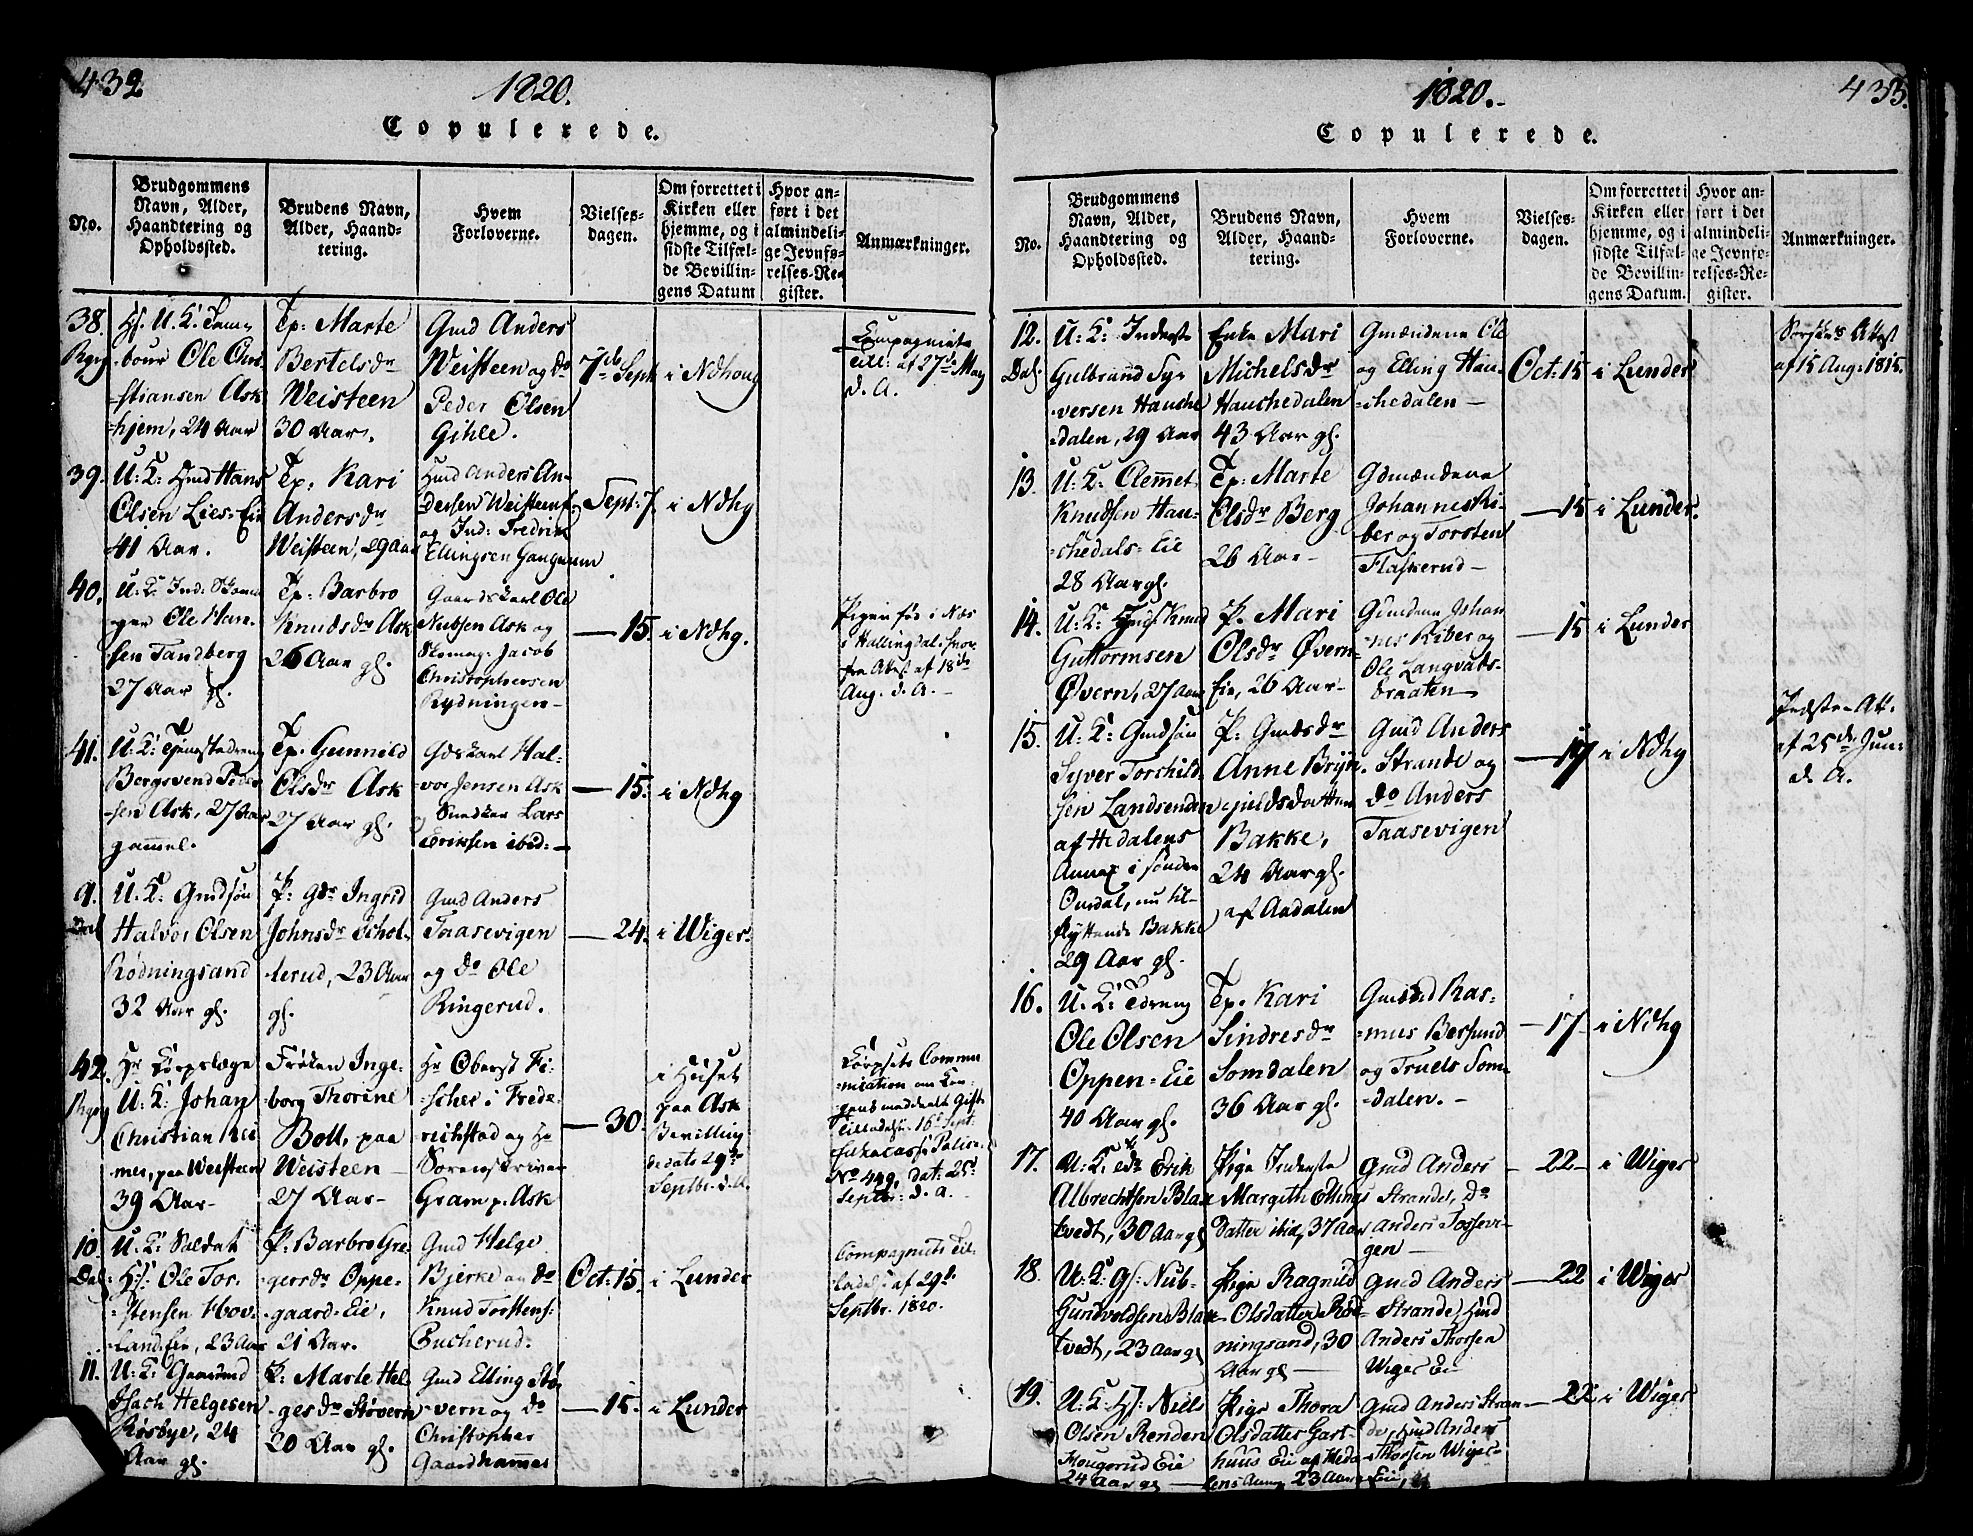 432
1820.
Copulerede.
No.
Brudgommens
Navn, Alder,
Haandtering og
Opholdssted.
Brudens Navn,
Alder, Haand-
tering.
Hvem
Forloverne.
Vielses-
dagen.
Om forrettet i
Kirken eller
hjemme, og i
sidste Tilfæl-
de Bevillin-
gens Datum
Hvor an-
ført i det
almindeli-
ge Jevnfø-
relses-Re-
gister.
Anmærkninger.
38.
U. K. Tam-
bour Ole Chri-
-stiansen Ask
-hjem, 24 Aar
Tp: Marte
Bertelsdr
Weisteen
30 Aar.
Gmd Anders
Weisteen og do
Peder Olsen
Gihle.
7de Septr
i Ndhoug
af 27de May
d. A.
39.
U: K: Hmd Hans
Olsen Lies-Eie
41 Aar.
Tp: Kari
Andersdr
Weisteen, 29 Aar
Hmd Anders An-
dersen Weisteen
og Ind: Fredrik
Ellingsen Gangnum
Sept: 7.
i Ndhg
40.
U: K: Ind: Skoma-
ger Ole Han-
sen Tandberg
27 Aar gl.
Tp: Barbro
Knudsdr Ask
26 Aar gl.
Gaardskarl Ole
Nubsen Ask og
Skomag: Jacob
Christophersen
Rydningen-
15.
i Ndhg.
Pigen fød i Næs
i Hallingdal, hvor-
fra Attest af 18de
Aug. d. A.-
41.
U: K: Tjenestedreng
Bergsvend Peder-
sen Ask, 27 Aar
gammel.
Tp. Gunnild
Olsdr Ask
27 Aar gl.
Gdskarl Hal-
vor Jensen Ask
Lars
Eriksen ibid:-
15.
i Ndhg
9.
Dal
U: K: Gmdsøn
Halvor Olsen
Rødningsand
32 Aar gl.
P: Gdr Ingrid
Johnsdr Schol-
lerud, 23 Aar
gl.
Gmd Anders
Taasevigen
og do Ole
Ringerud.
24.
i Wiger.
42.
Hr Corpslæge
U: K: Johan
Christian Rei
mes, paa Weisteen
39 Aar-
Frøken Inge-
borg Thorine
Boll, paa
Weisteen-
27 Aar-
Hr Oberst Fi-
scher i Frede-
richstad og Hr
Sorenskriver
Gram p. Ask
30.
i Huset
paa Ask
Bevilling
dedats 29de
Septbr. d. A.
Corpsets Commu-
nication om Kon-
gens meddeelte Gifte
Tilladelse 16 Sept.
No 449, dat: 25de
Septbr: d. A.-
10.
Dal.
U: K: Soldat
Ole Tor-
-stensen Hov-
land Eie, 23 Aar
P: Barbro Gre-
gersdr Oppe-
gaard-Eie,
21 Aar.
Gmd Helge
Bjerke og do
Knud Torstens:
Bucherud.
Oct: 15.
i Lunder
Compagniets Til-
ladelse af 29de
Septbr. 1820.
11.
U: K: Gaardmd
Isach Helgesen
Røsbye, 24
Aar gl.
P. Marte Hel-
gesdr Støvern
20 Aar gl.
Gmd Elling Stø-
-vern og do
Christopher
Gaardhammer
15.
i Lunder
1820.-
433.
Copulerede.
No.
Brudgommens
Navn, Alder,
Haandtering og
Opholdssted.
Brudens Navn,
Alder, Haand-
tering.
Hvem
Forloverne.
Vielses-
dagen.
Om forrettet i
Kirken eller
hjemme, og i
sidste Tilfæl-
de Bevillin-
gens Datum.
Hvor an-
ført i det
almindeli-
ge Jevnfø-
relses-Re-
gister.
Anmærkninger.
12.
Dal.
U: K: Inderste
Gulbrand Sy-
versen Hauske
dalen, 29 Aar
Enke Mari
Michelsdr
Hauschedalen
43 Aar gl.
Gmændene Ole
og Elling Hau-
-schedalen-
Oct: 15
i Lunder
Attest
af 15 Aug: 1815.
13.
U: K: Clemmet
Knudsen Hau-
-schedals-Eie
28 Aar gl.
Tp: Marte
Olsdr Berg
26 Aar-
Gdmændene
Johannes Ri-
ber og Torsten
Flaskerud-
15
i Lunder.
14.
U: K: Knud
Guttormsen
Øvern, 27 Aar
P. Mari
Olsdr Øvern-
Eie, 26 Aar-
Gmdene Johan
-nes Riber og
Ole Langvads-
braaten
15
i Lunder
15.
U: K: Gmdsøn
Syver Torchild-
sen Landsenden
af Hedalens
Annex i søndre
Ourdal, nu til-
flyttende Bakke
29 Aar gl.
P: Gmdsdr
Anne Bryn-
Bakke,
24 Aar gl.
af Aadalen
Gmd Anders
Strande og
do Anders
Taasevigen
17
i Ndhg
af 25de Jun:
d. A.
16.
U. K: Tdreng
Ole Olsen
Oppen-Eie
40 Aar gl.
Tp: Kari
Sindresdr
Somdalen
36 Aar gl.
Ras-
-mus Bersund
og Truels Som-
-dalen.-
17
i Ndhg
17.
U: K. Erik
Albrechtsen Blak
tvedt, 30 Aar gl
Pige Inderste
Margith Ellings
datter ibid, 37 Aar
Gmd Anders
Strande, do
Anders Tossevi-
gen
22
i Wiger
18.
U: K: Nub-
Gundvoldsen Blak
tvedt, 23 Aar gl
Pige Ragnild
Olsdatter Rød-
ningsand, 30
Aar gl
Gmd Anders
Strande, Hmd
Anders Thorsen
Wiger Eie
22
i Wiger
19.
U: K: Niels
Olsen Renden
Hougerud Eie
24 Aar gl
Pige Thora
Olsdatter Gart-
huus Eie af Heda-
lens Annex 23 Aar
Gmd Anders Stran-
de, Hmd Anders
Thorsen Wiger-
Eie
22
i Wiger